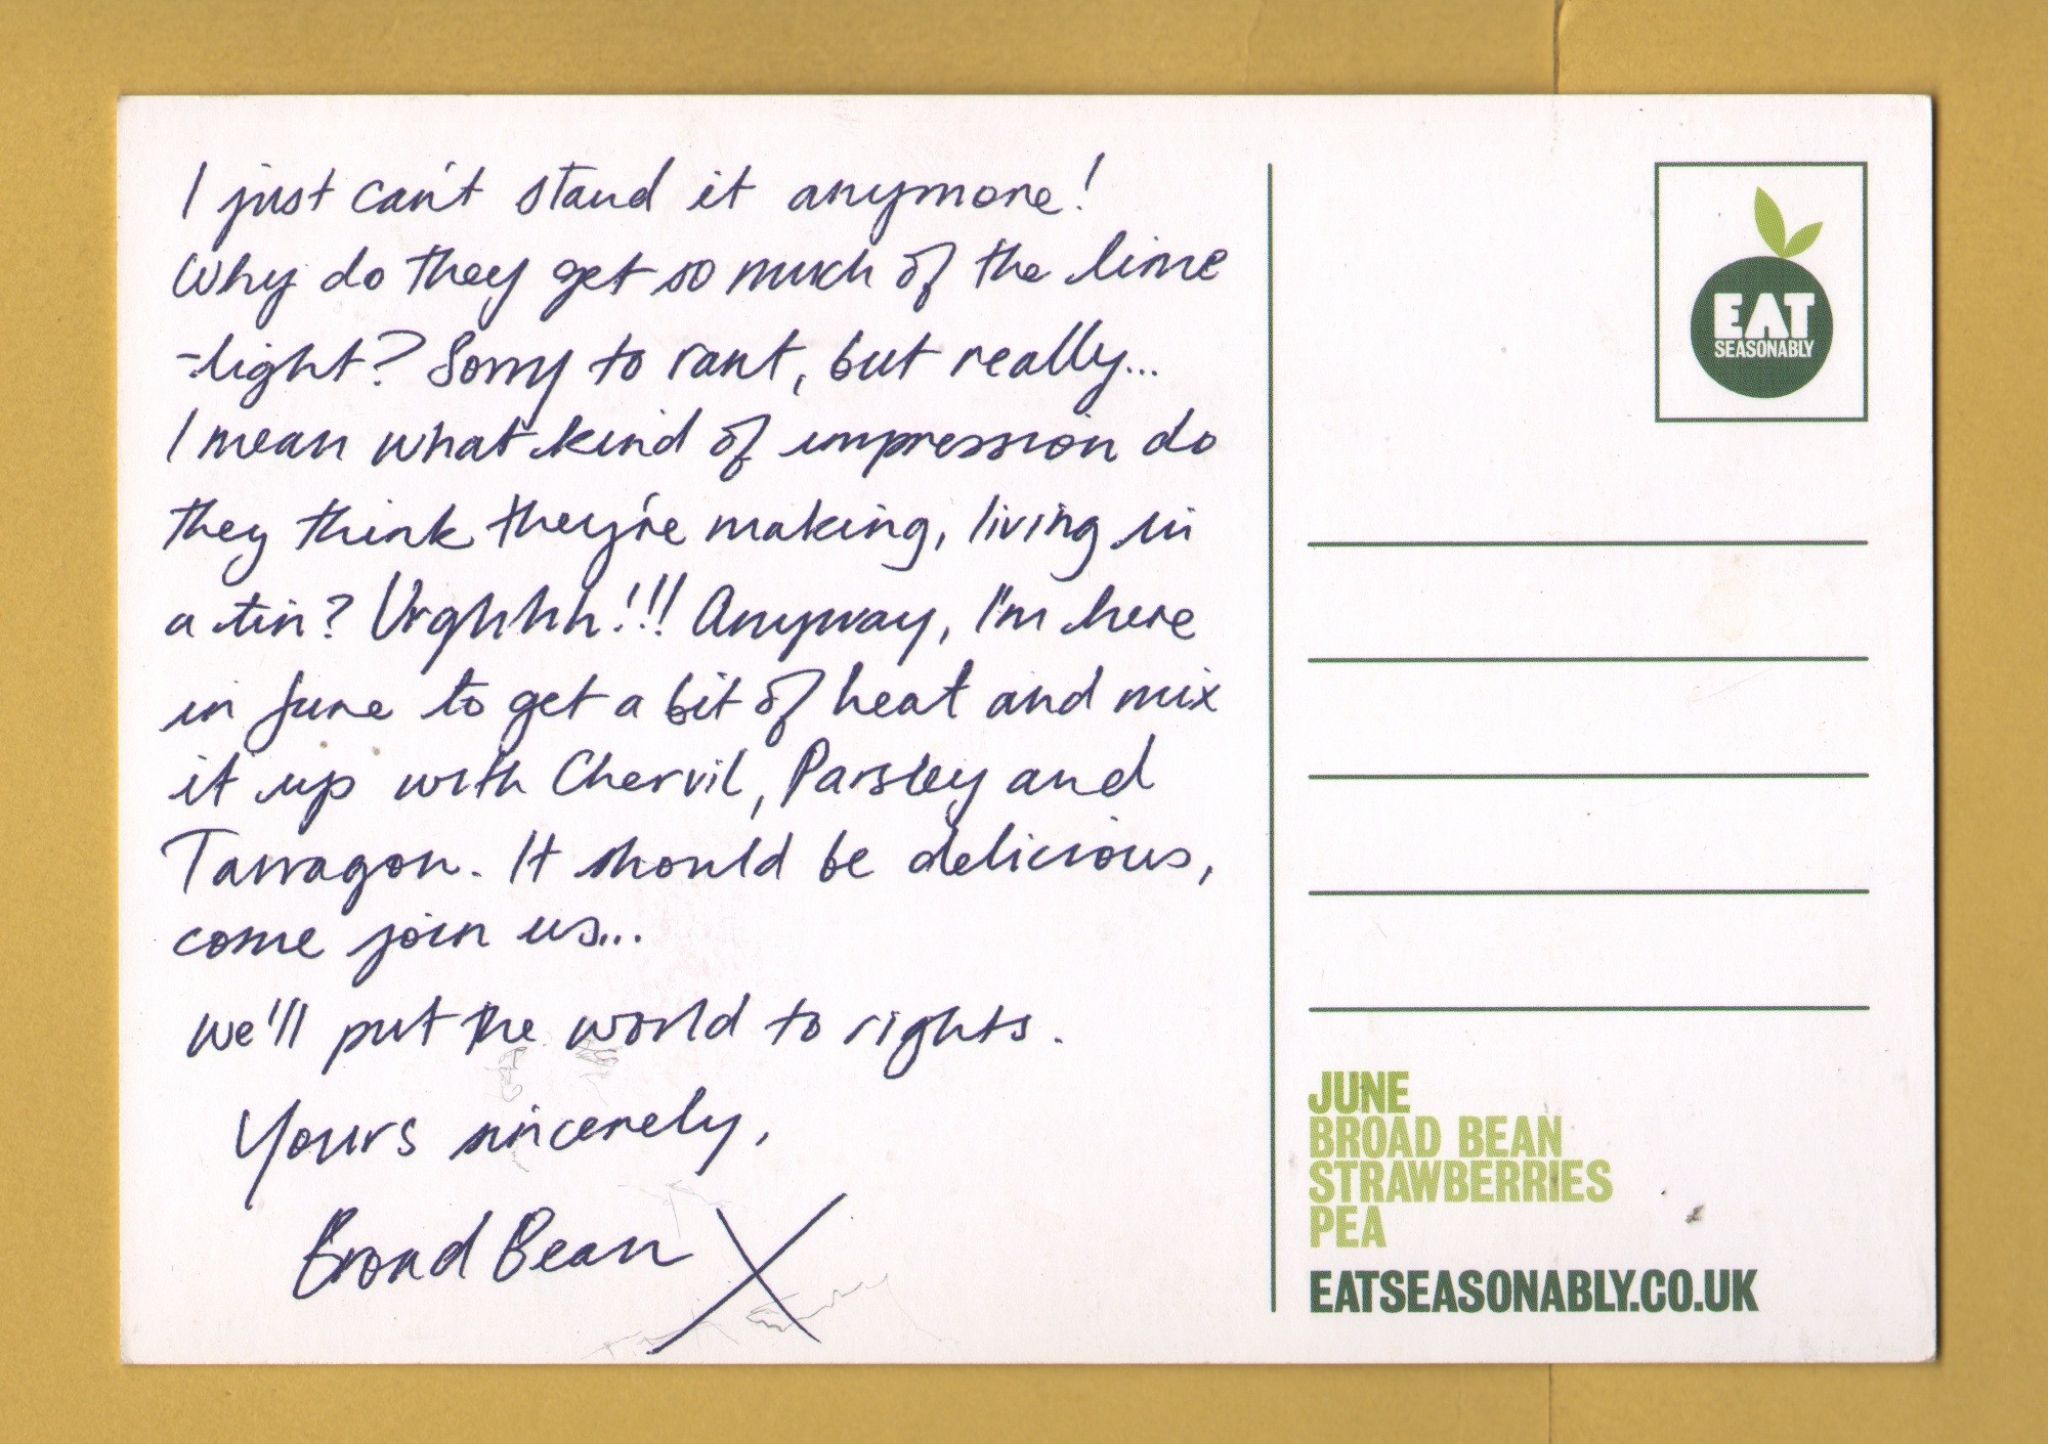 I just can't stand it anymore!
Why do they get so much of the lime
-light? Sorry to rant, but really...
I mean what kind of impression do
they think they're making, living in
a tin? Urghhhh!!! Anyway, I'm here
in June to get a bit of heat and mix
it up with Chervil, Parsley and
Tarragon. It should be delicious,
come join us...
We'll put the world to rights.
Yours sincerely,
Broad Bean X
EAT
SEASONABLY
JUNE
BROAD BEAN
STRAWBERRIES
PEA
EATSEASONABLY.CO.UK